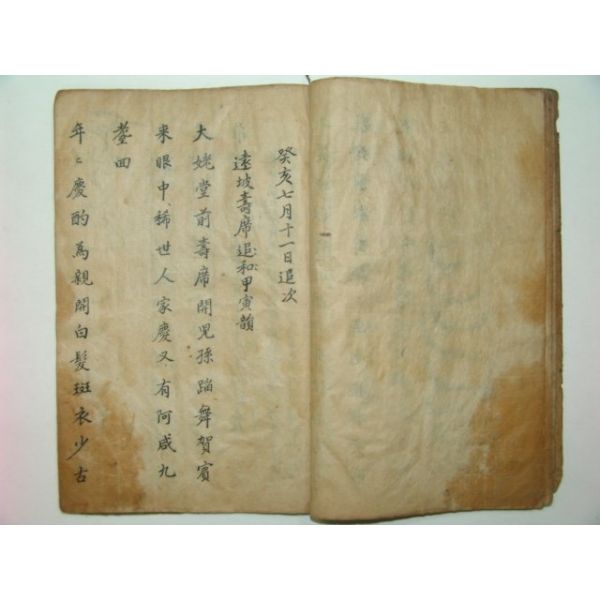 癸亥七月十一日追次
遠坡壽席追和甲寅韻
大姥堂前壽席開兒孫蹈舞賀賓
來眼中稀世人家慶又有阿咸九
耋回
年〻慶酌爲親開白髮斑衣少古